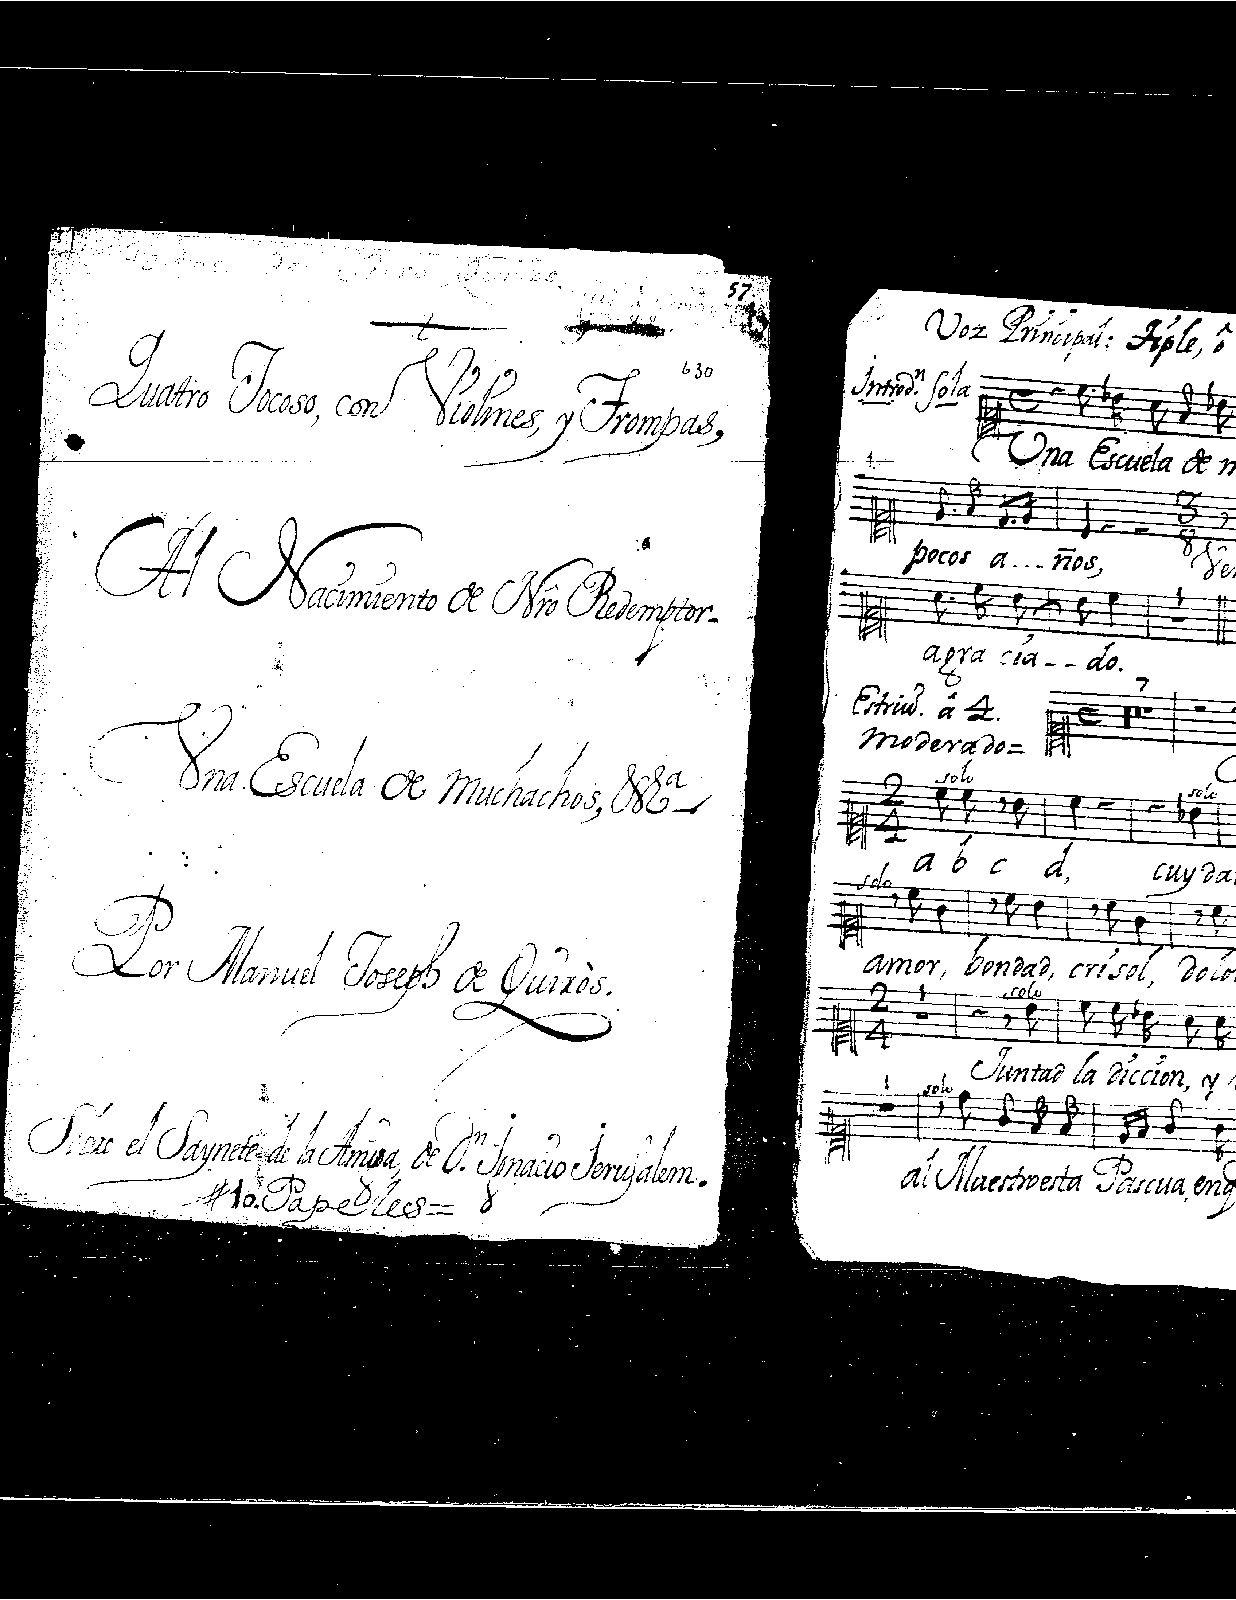 57
630
Quatro Jocoso, con Violines, y Trompas,
Al Nacimiento de Nrô Redemptor-
Vna Escuela de Muchachos, &ª
Por Manuel Joseph de Quiròs.
el Saynete de la Amiga, de Dn. Ignacio Jerusalem.
#10. Papeles= 8
Voz Principal: Tiple, ô
Introdn. sola
Una Escuela de m
pocos a...ños,
agracia--do.
Estriv. â 4.
7
moderado=
solo
solo
a b c d, cuyda
solo
amor, bondad, crisol, dolo
1
solo
Juntad la diccion, y
1
solo
al Maestro esta Pascua, en